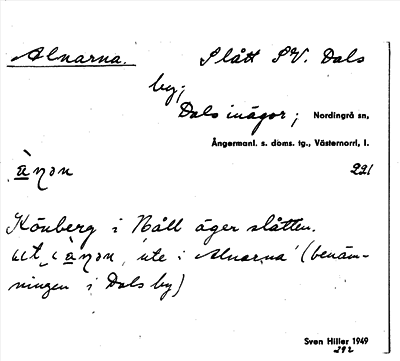 Alnarna. Slått SV. Dals
by;
Dals inägor; Nordingrå sn,
Ångermanl. s. doms. tg., Västernorrl. l.
221
Könberg i Båll äger slåtten.
'ute i Alnarna' (benäm-
ningen i Dals by)
Sven Hiller 1949
292